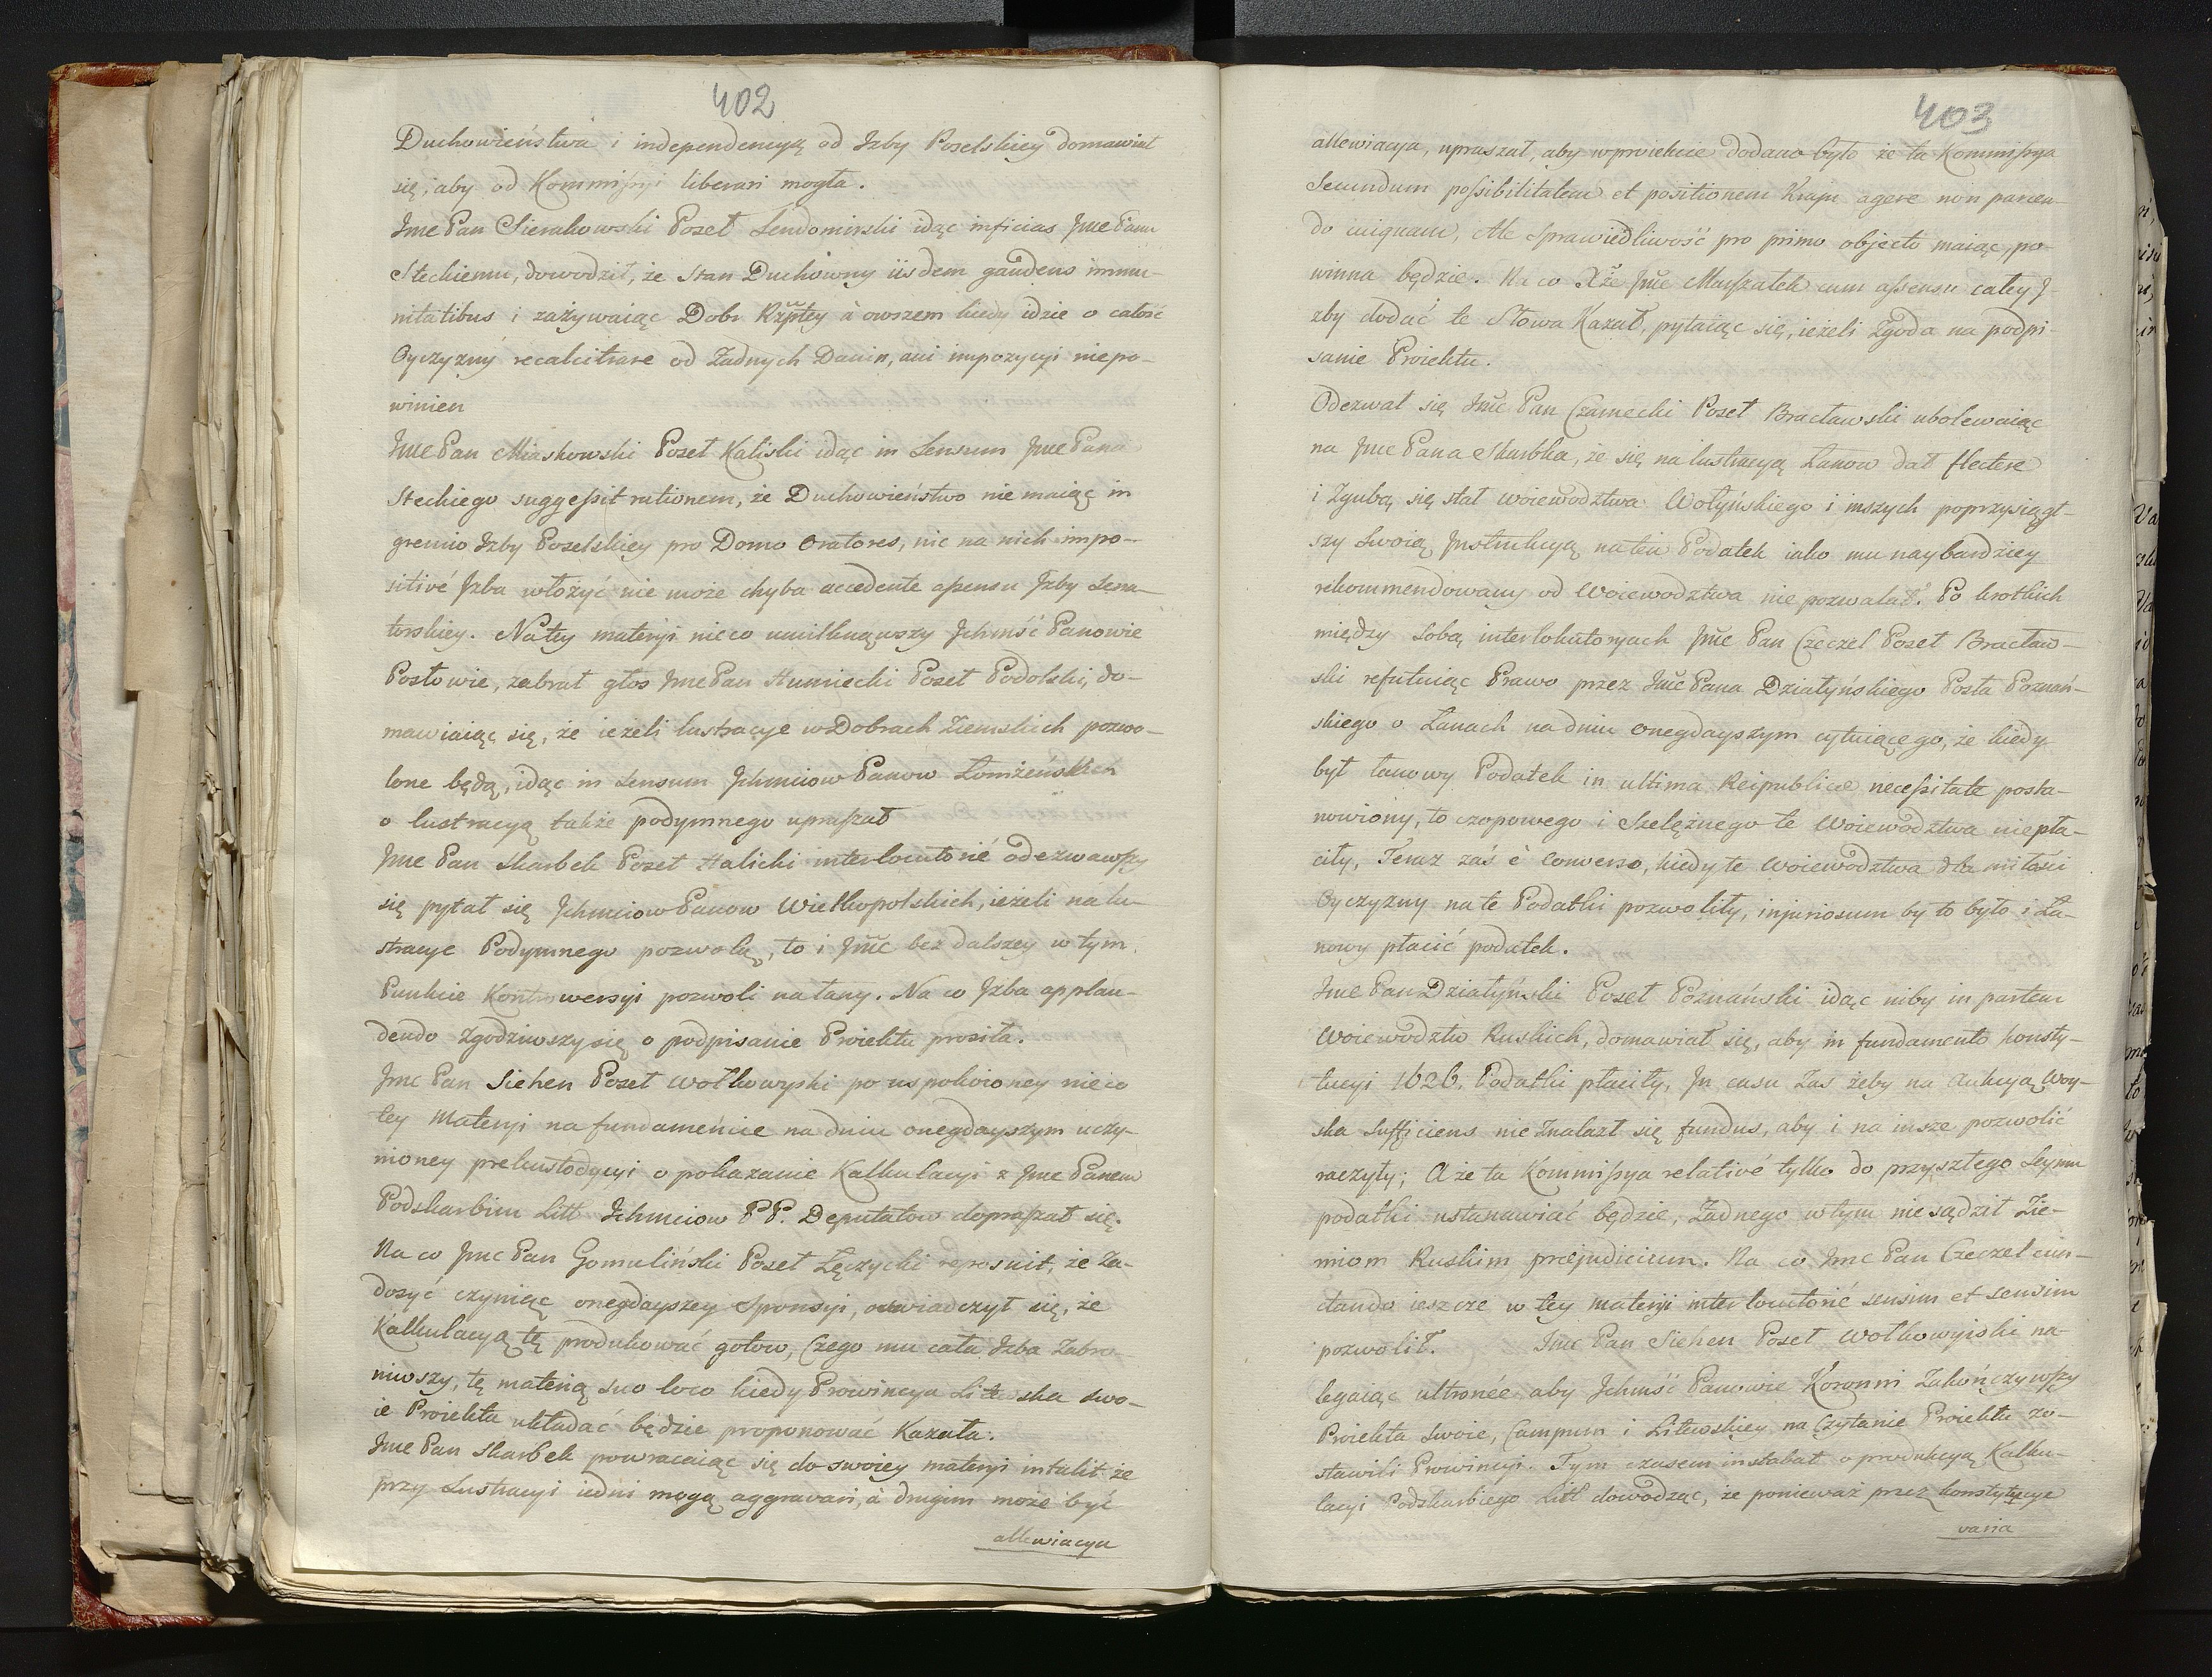 402
Duchowieństwa i independencyą od Izby Poselskiey domawiał
się, aby od Kommissyi liberari mogła.
Jmc Pan Sierakowski Poseł Sendomirski idąc inficias Jmc Panu
Steckiemu, dowodził, że Stan Duchowny iisdem gaudens immu-
nitatibus i zażywaiąc Dobr Rzptey à owszem kiedy idzie o całość
Oyczyzny recalcitrare od Żadnych Danin, ani impozycyi niepo-
winien
Jmc Pan Miaskowski Poseł Kaliski idąc in Sensum Jmc Pana
Steckiego suggessit rationem, że Duchowieństwo nie maiąc in
gremio Izby Poselskiey pro Domo Oratores, nic na nich impo-
sitivé Izba włożyć nie może chyba accedente assensu Izby Sena-
torskiey. Na tey materyi nieco umilknąwszy Ichmść Panowie
Posłowie, zabrał głos Jmc Pan Humiecki Poseł Podolski, do-
mawiaiąc się, że ieżeli lustracye w Dobrach Ziemskich pozwo-
lone będą, idąc in Sensum Ichmciow Panow Łomżeńskich
o lustracyą także podymnego upraszał
Jmc Pan Skarbek Poseł Halicki interlocutorié odezwawszy
się pytał się Ichmciow Panow Wielkopolskich, ieżeli na lu-
stracye Podymnego pozwolą, to i Jmc bez dalszey w tym
Punkcie Kontrowersyi pozwoli na łany. Na co Izba applau-
dendo Zgodziwszy się o podpisanie Proiektu prosiła.
Jmc Pan Siehen Poseł Wołkowyski po uspokoioney nieco
tey Materyi na fundamencie na dniu onegdayszym uczy-
nioney prekustodycyi o pokazanie Kalkulacyi z Jmc Panem
Podskarbim Litt Ichmciow PP. Deputatow dopraszał się.
Na co Jmc Pan Gomuliński Poseł Łęczycki reposuit, że Za-
dosyć czyniąc onegdayszey Sponsyi, oświadczył się, że
Kalkulacyą tę produkować gotow, Czego mu cała Izba Zabro-
niwszy, tę materią suo loco kiedy Prowincya Litewska swo-
ie Proiekta układać będzie proponować Kazała.
Jmc Pan Skarbek powracaiąc się do swoiey materyi intulit że
przy Lustracyi iedni mogą aggravari, à drugim może być
allewiacya
403
allewiacya, upraszał, aby w proiekcie dodano było że ta Kommissya
Secundum possibilitatem et positionem Kraju agere non parcen-
do cuiquam, Ale Sprawiedliwość pro primo objecto maiąc, po-
winna będzie. Na co Xże Jmć Marszałek cum assensu całey I-
zby dodać te Słowa Kazał, pytaiąc się, ieżeli Zgoda na podpi-
sanie Proiektu.
Odezwał się Jmć Pan Czarnecki Poseł Bracławski ubolewaiąc
na Jmc Pana Skarbka, że się na lustracyą Łanow dał flectere
i Zgubą się stał woiewodztwa Wołyńskiego i inszych poprzysiągł-
szy Swoią Instrukcyą na ten Podatek iako mu naybardziey
rekommendowany od Woiewodztwa nie pozwalał. Po krotkich
między Sobą interlokutoryach Jmć Pan Czeczel Poseł Bracław-
ski refutuiąc Prawo przez Jmć Pana Działyńskiego Posła Poznań-
skiego o Łanach na dniu onegdayszym cytuiącego, że kiedy
był łanowy Podatek in ultima Reipublicæ necessitate posta-
nowiony, to czopowego i Szelężnego te Woiewodztwa niepła-
ciły, Teraz zaś è Converso, kiedy te Woiewodztwa dla miłości
Oyczyzny na te Podatki pozwoliły, injuriosum by to było i Ła-
nowy płacić podatek.
Jmc Pan Działyński Poseł Poznański idąc niby in partem
Woiewodztw Ruskich, domawiał się, aby in fundamento konsty-
tucyi 1626. Podatki płaciły, In casu Zas żeby na Aukcyą Woy-
ska Sufficiens nie Znalazł się fundus, aby i na insze pozwolić
raczyły; A że ta Kommissya relativé tylko do przyszłego Seymu
podatki ustanawiać będzie, Żadnego w tym nie sądził Zie-
miom Ruskim præjudicium. Na co Jmc Pan Czeczel cun-
ctando ieszcze w tey materyi interlocutorié sensim et sensim
pozwolił. Jmc Pan Siehen Poseł Wołkowyiski na-
legaiąc ultronée aby Ichmść Panowie Koronni Zakończywszy
Proiekta Swoie, Campum i Litewskiey na Czytanie Proiektu zo-
stawili Prowincyi. Tym czasem instabat o produkcyą Kalku-
lacyi Podskarbiego Litt dowodząc, że ponieważ przez konstytucye
varia